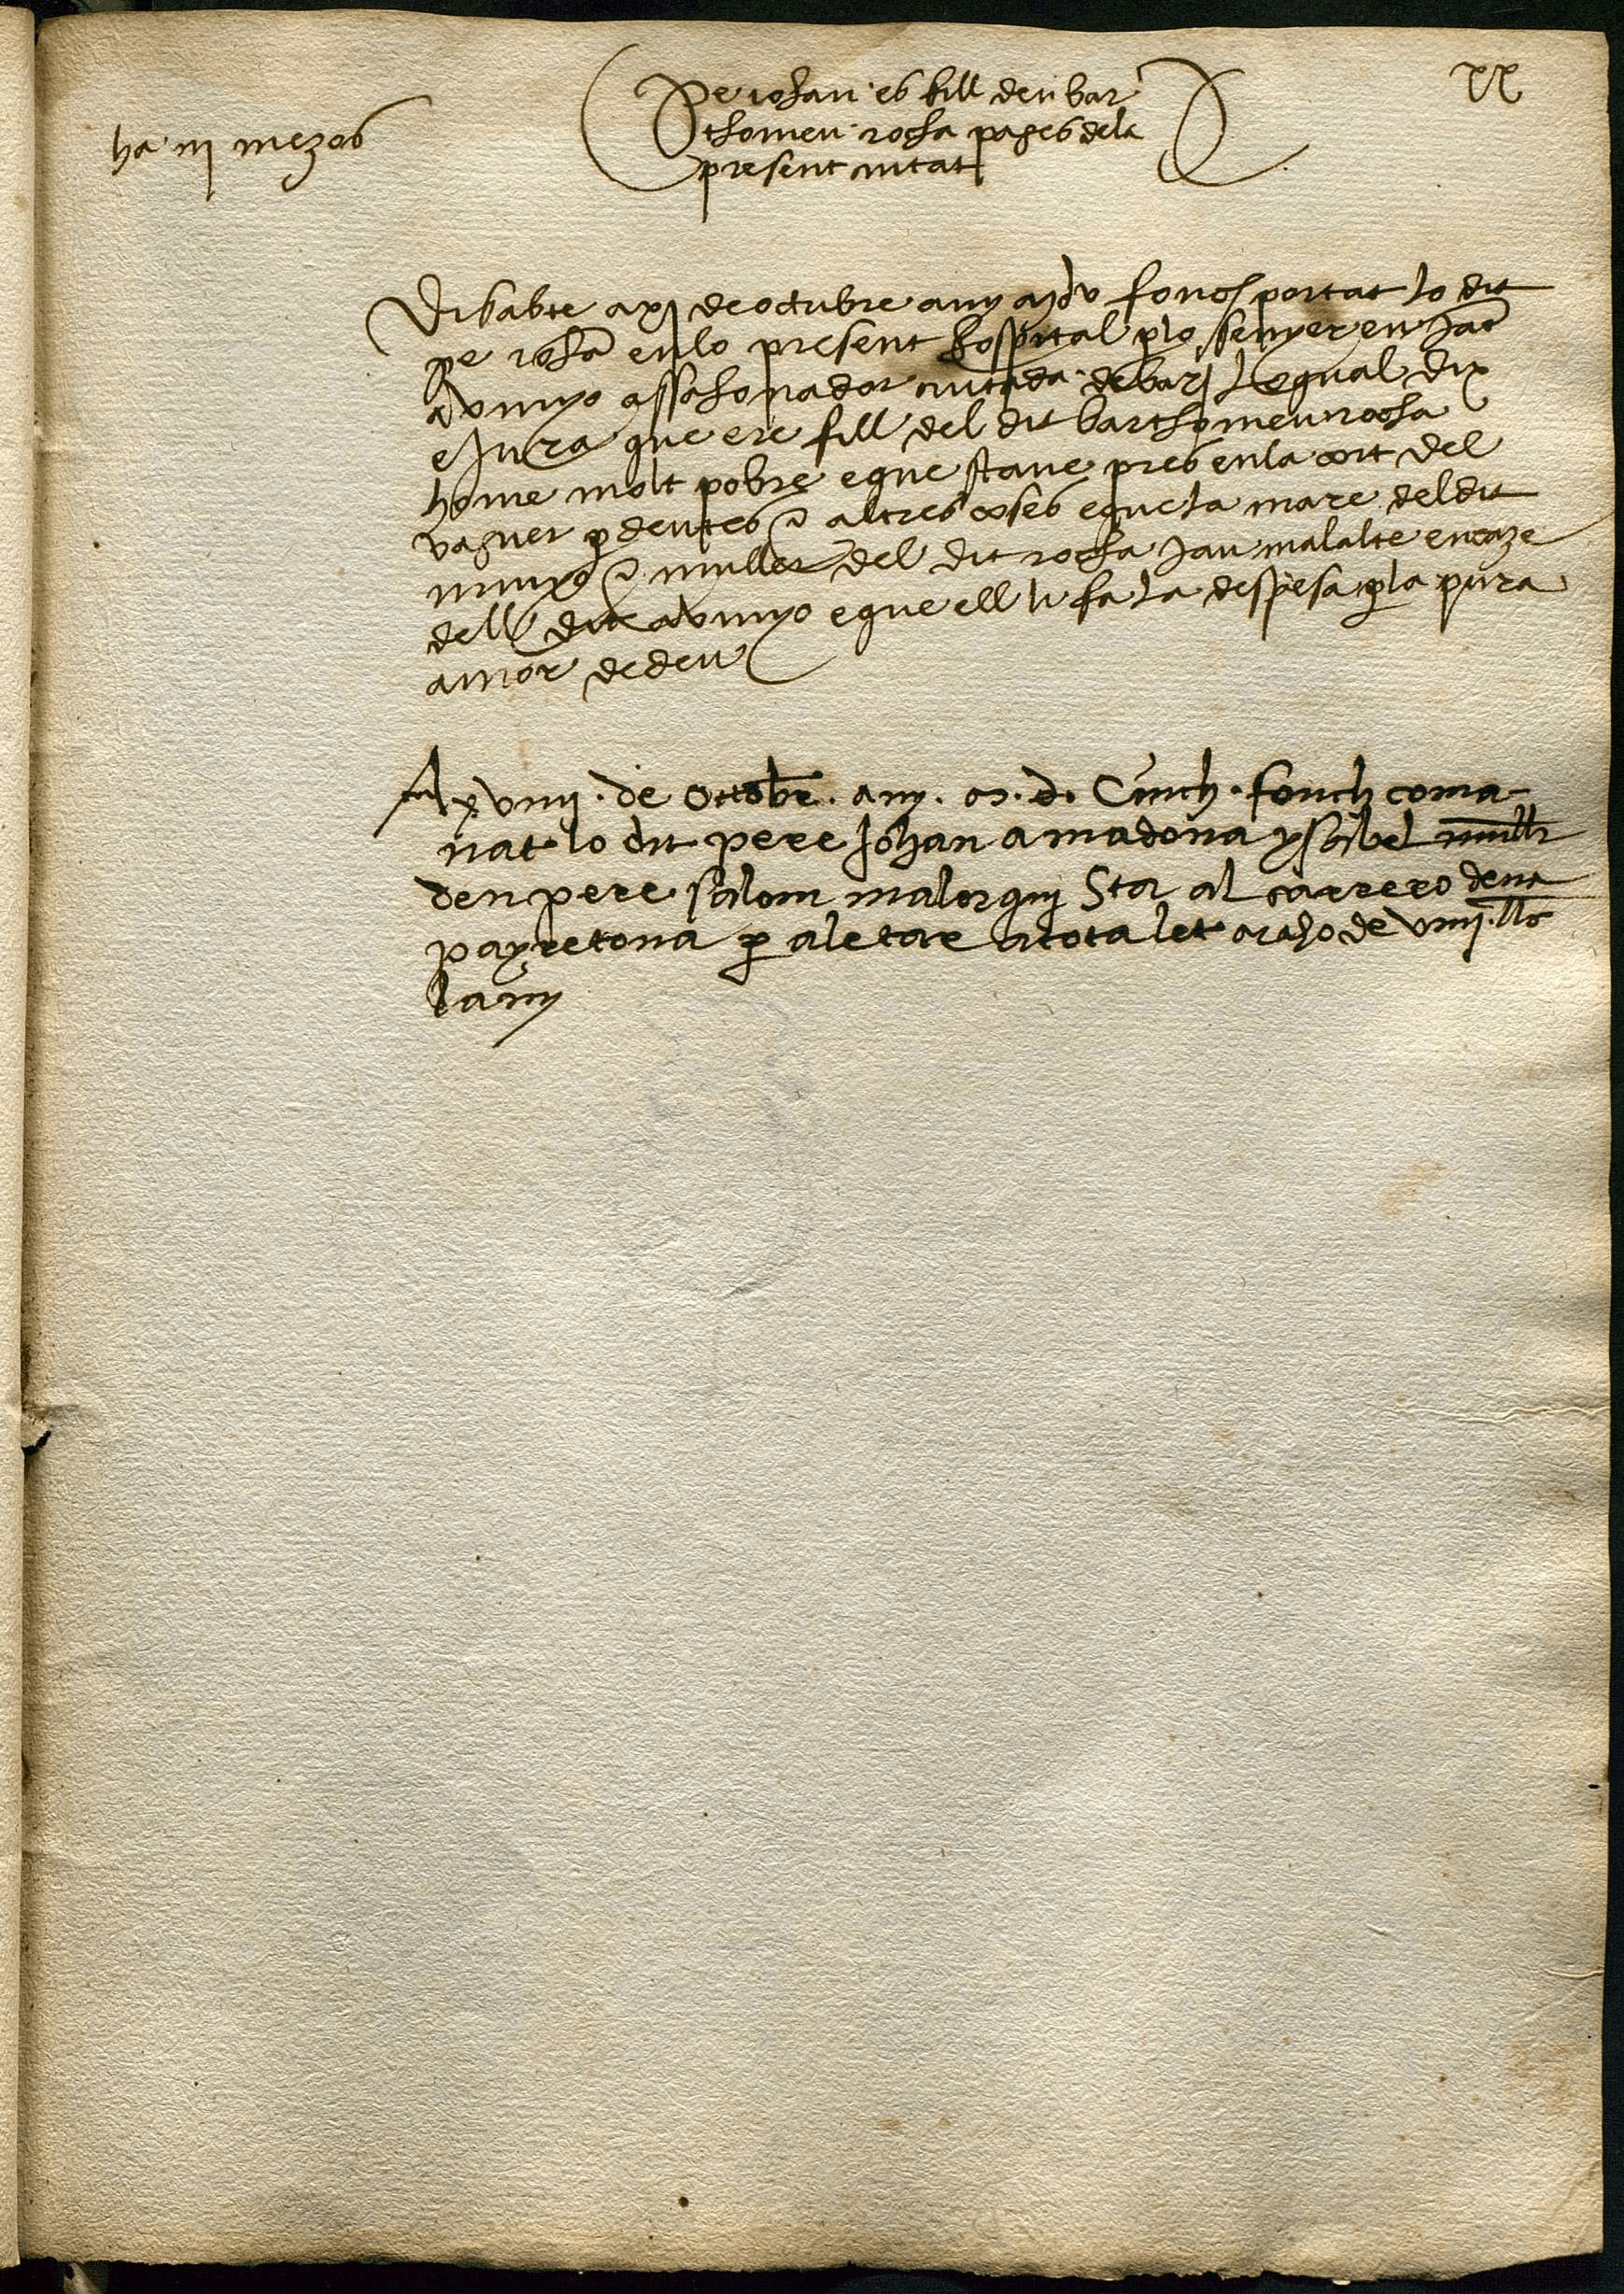 xx
ha iij mezos
Pe johan es fill den bar
thomeu rocha pages dela
present ciutat
Disabte a xj de octubre any mdv fonch portat lo dit
pe joha enlo present hospital p lo senyer en Jac
assahonador ciutada de bar lo qual dix
e Jura que ere fill del dit barthomeu rocha
home molt pobre e que stave pres enla cort del
vaguer p deutes e altres coses e que la mare del dit
minyo e muller del dit rocha Jau malalte en caze
dell dit e que ell li fa la despesa p la pura
amor de deu
A xviiij de Octobr any m d Cinch fonch coma
nat lo dit pere Johan a madona ysabel mull
den pere salom malorqui Sta al carrero dena
payretona p aletar a tota let a raho de viiij ll
lany